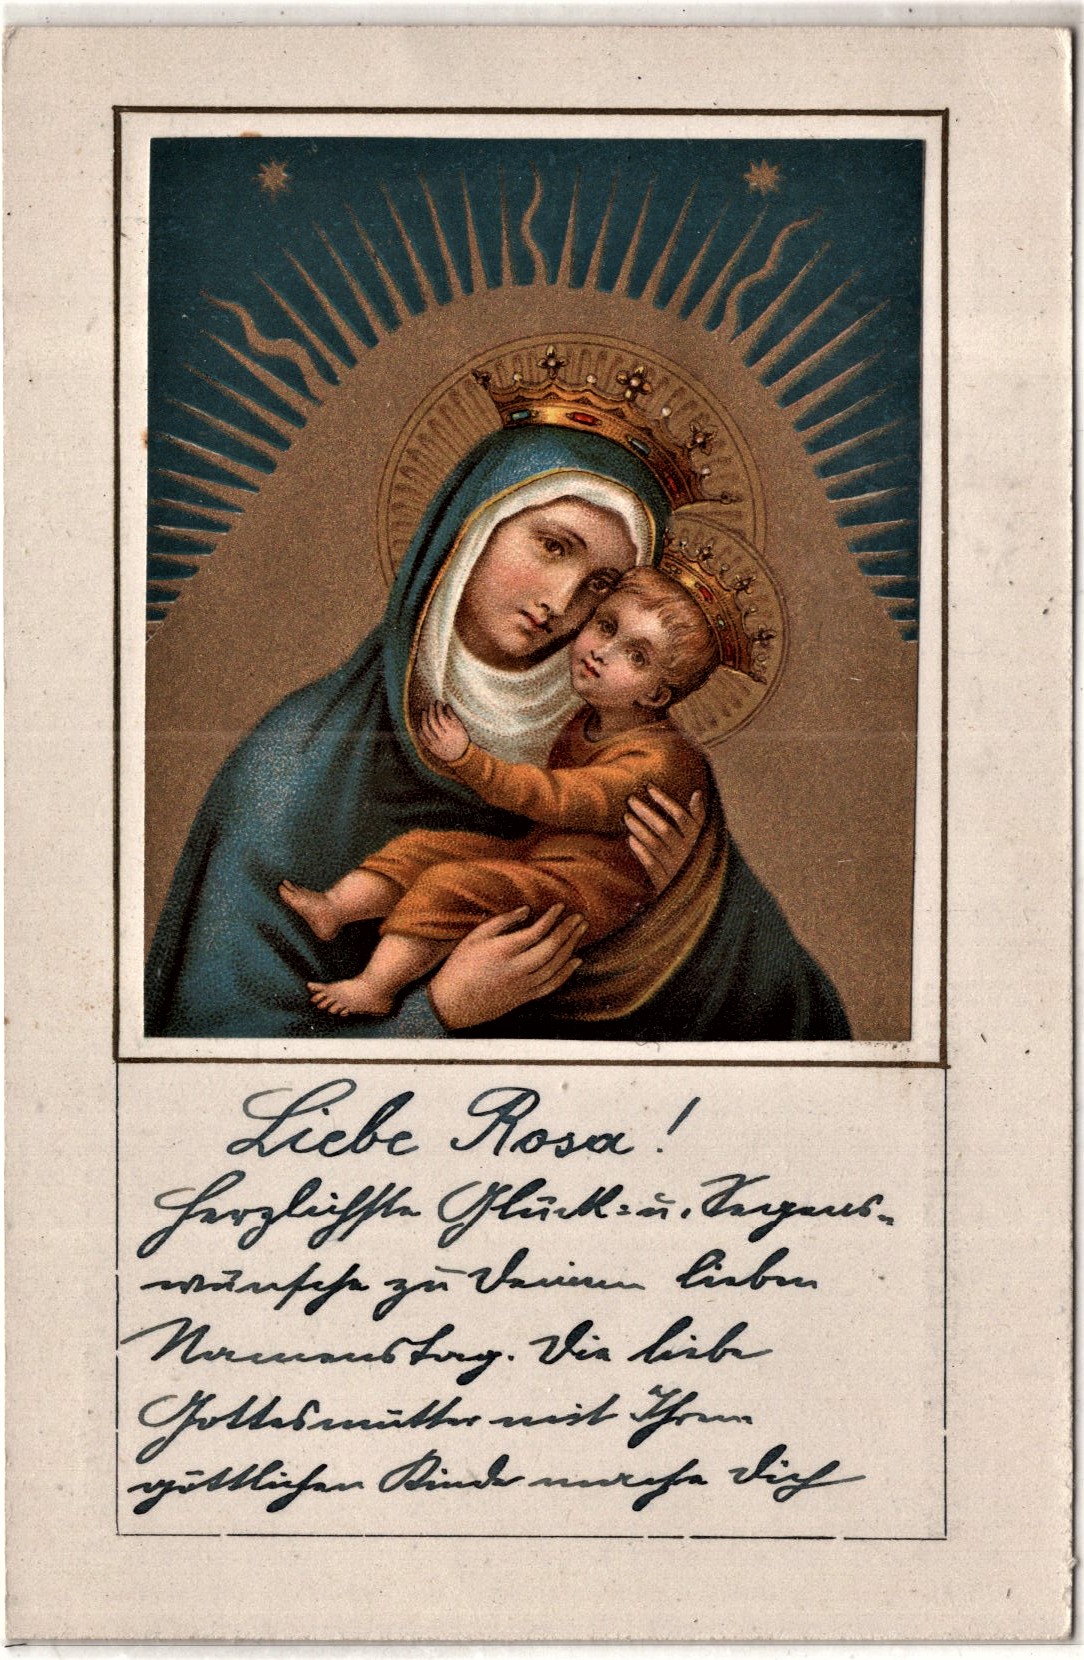 Liebe Rosa!
Herzlichste Glück= u. Segens-
wünsche zu Deinem lieben
Namenstag. Die liebe
Gottesmutter mit Ihrem
göttlichen Kinde mache Dich